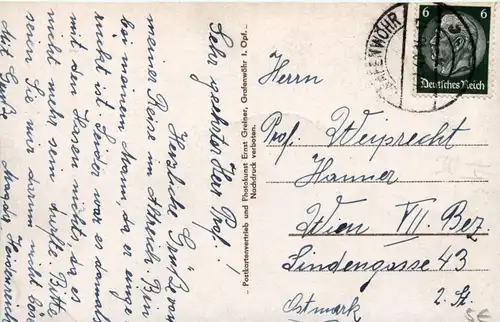 Sehr geehrter Herr Prof.!
Herzliche Grüße von
meiner Reise im Altreich. Bin
bei meinem Mann, da er einge
rückt ist. Leider war es damals
mit den Hasen nichts da es
nicht mehr sein durfte. Bitte
seien Sie mir darum nicht böse
Mit Gruß Magda
Postkartenvertrieb und Photokunst Ernst Greiner, Grafenwöhr i. Opf.
Nachdruck verboten.
GRAFENWÖHR
6 6
Deutsches Reich
Herrn
Prof. Weyprecht
Hanner
Wien VII. Bez
Lindengasse 43
Ostmark 2. St.
5€